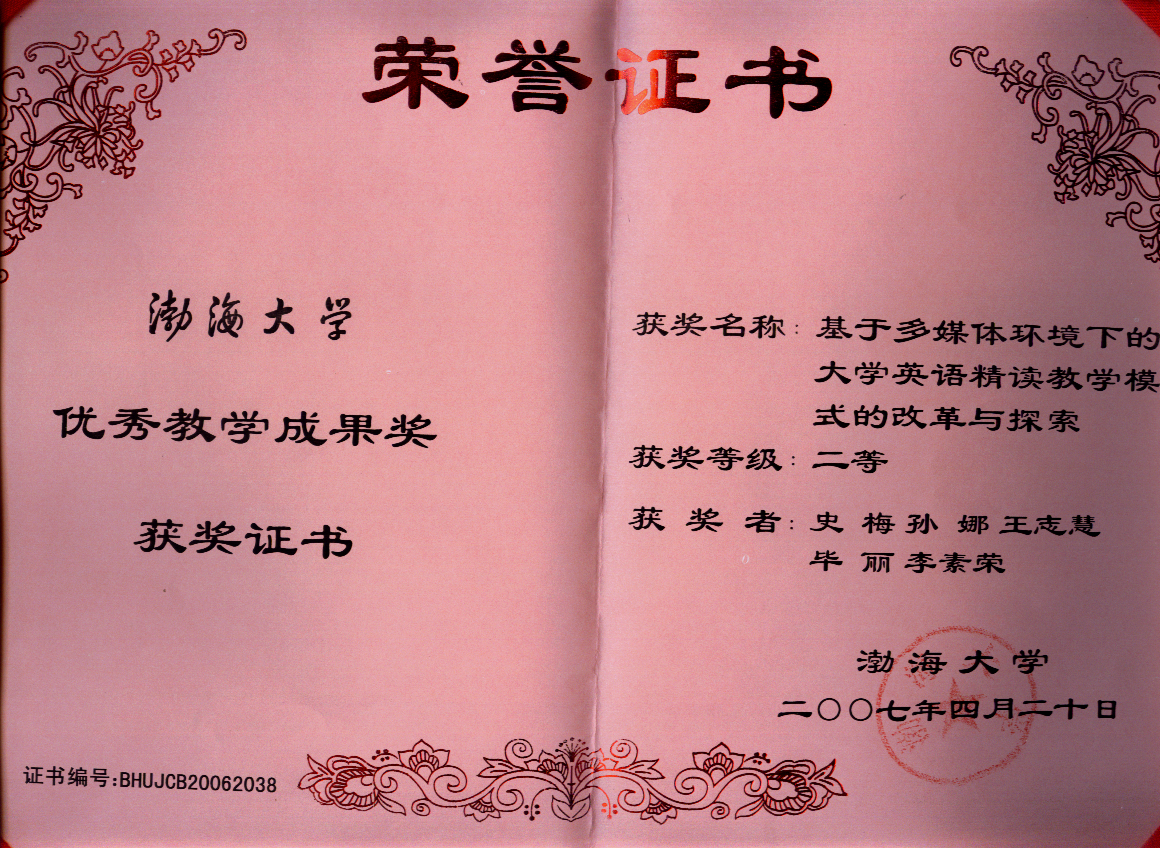 荣誉证书
渤海大学
优秀教学成果奖
获奖证书
证书编号:BHUJCB20062038
获奖名称：基于多媒体环境下的
大学英语精读教学模
式的改革与探索
获奖等级：二等
获奖者：史 梅 孙 娜 王志慧
毕 丽 李素荣
渤海大学
二〇〇七年四月二十日